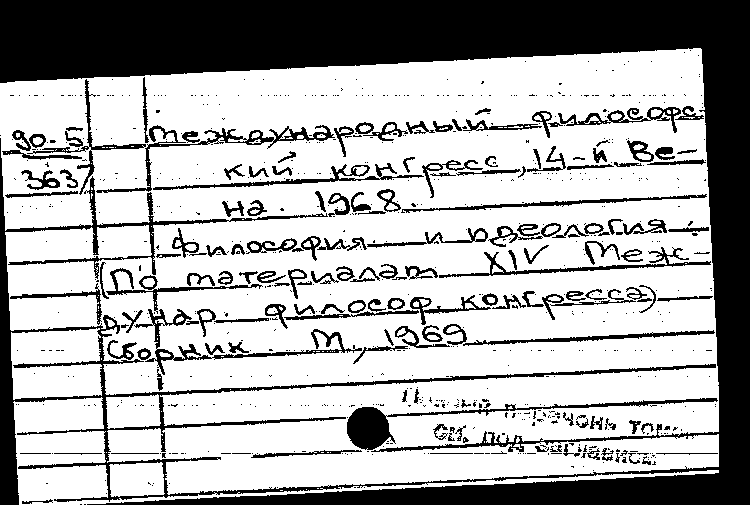 90-5 Международный философс
3637 кий конгресс, 14-й Ве-
на. 1968.
Философия и идеология.
(По материалам XIV Меж-
дунар. философ. конгресса)
Сборник. М., 1969
Полный перечень томов
см. под заглавием